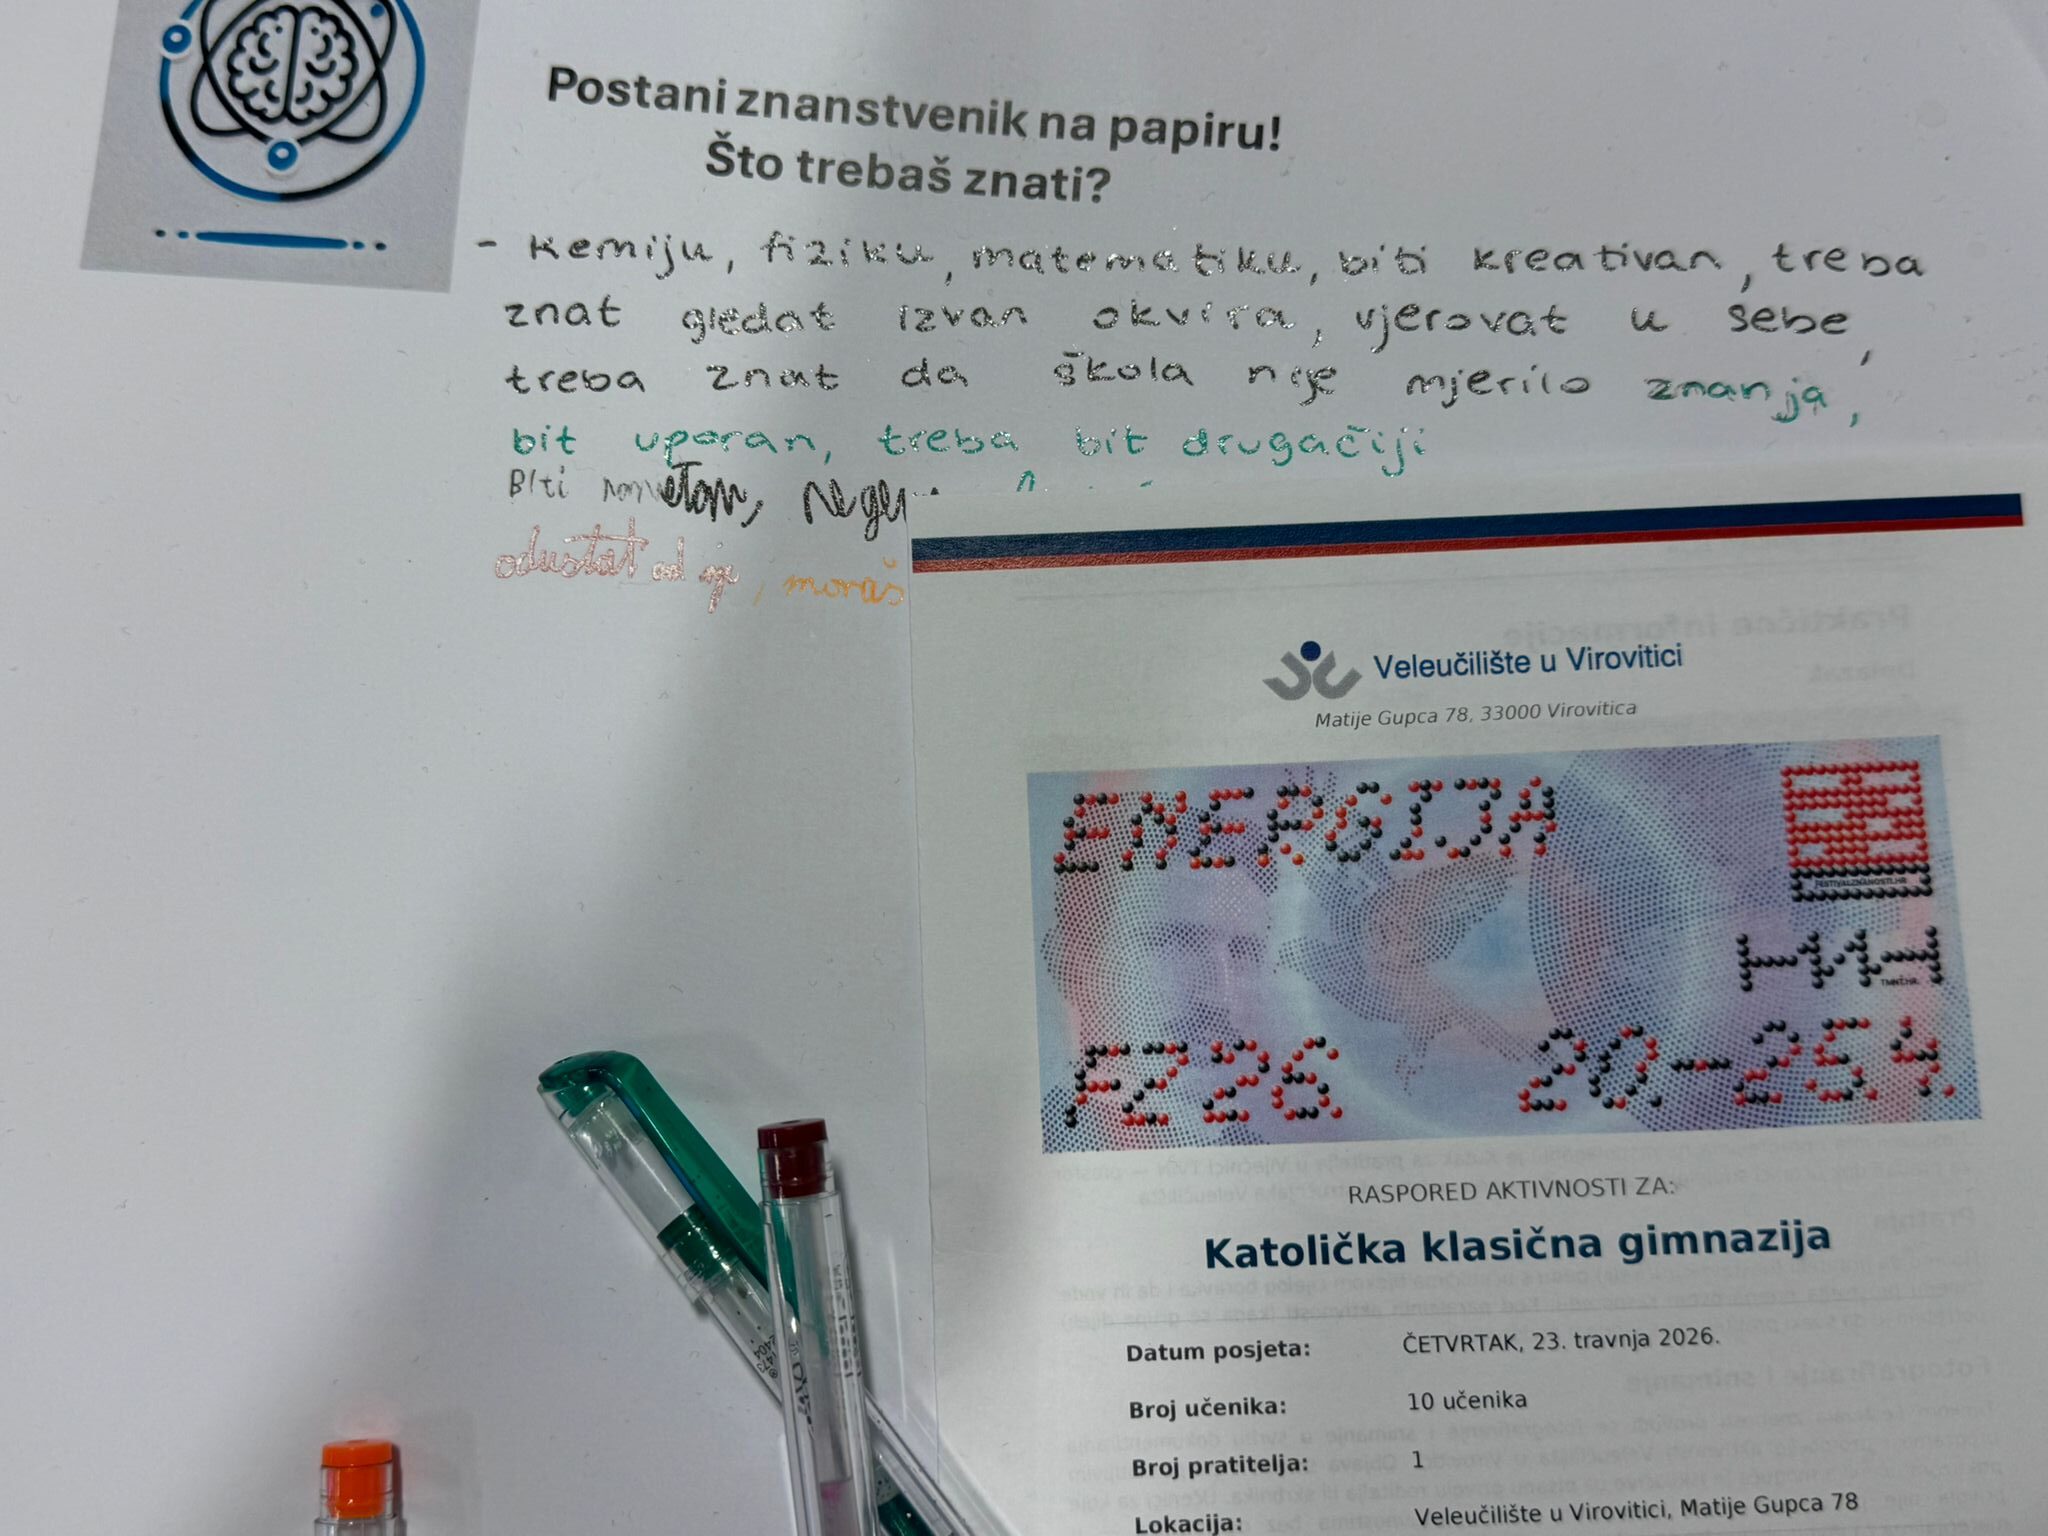 Postani znanstvenik na papiru!
Što trebaš znati?
- kemiju, fiziku, matematiku, biti kreativan, treba
znat gledat izvan okvira, vjerovat u sebe,
treba znat da škola nije mjerilo znanja,
bit uporan, treba bit drugačiji
Biti
odustat od, moraš
Veleučilište u Virovitici
Matije Gupca 78, 33000 Virovitica
ENERGIJA
FESTIVALZNANOSTI.HR
TMNT.HR
FZ26 20.-25.4.
RASPORED AKTIVNOSTI ZA:
Katolička klasična gimnazija
Datum posjeta: ČETVRTAK, 23. travnja 2026.
Broj učenika: 10 učenika
Broj pratitelja: 1
Lokacija: Veleučilište u Virovitici, Matije Gupca 78